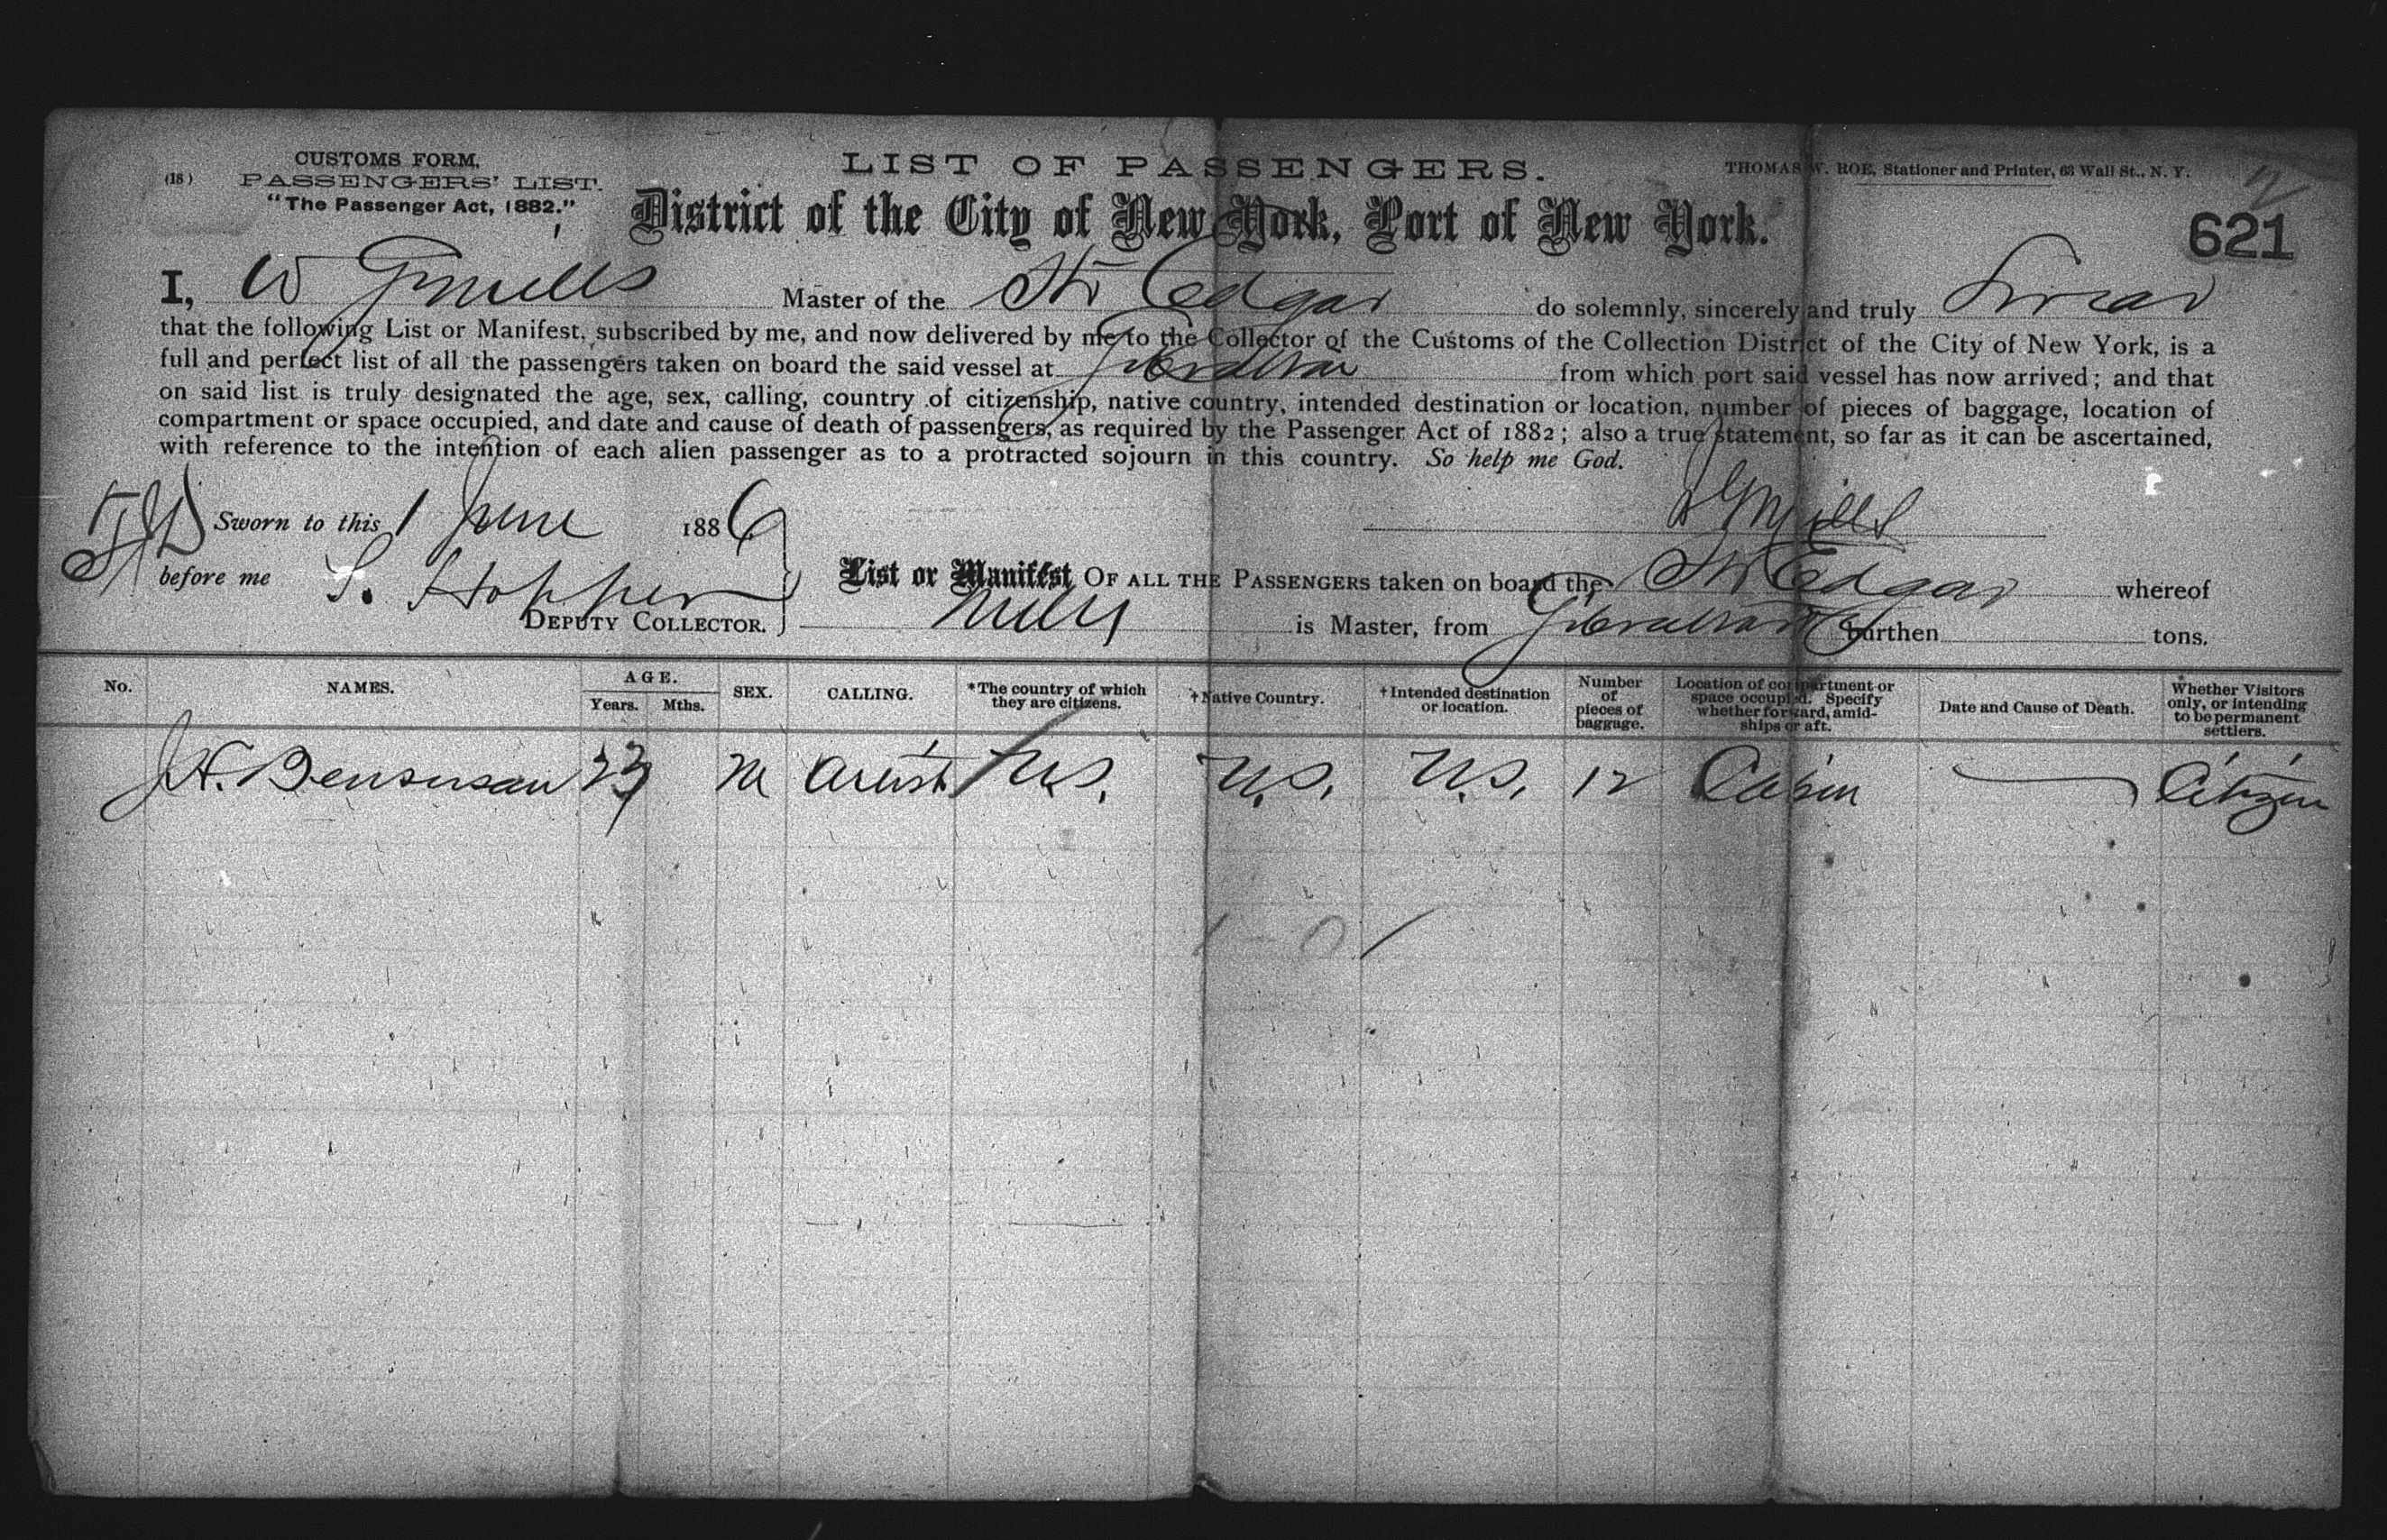 CUSTOMS FORM.
(18) PASSENGERS' LIST.
"The Passenger Act, 1882."
LIST OF PASSENGERS.
THOMAS W. ROE, Stationer and Printer, 63 Wall St., N. Y.
District of the City of New York, Port of New York.
621
I, W G Mills Master of the Str Edgar do solemnly, sincerely and truly Swear
that the following List or Manifest, subscribed by me, and now delivered by me to the Collector of the Customs of the Collection District of the City of New York, is a
full and perfect list of all the passengers taken on board the said vessel at Gibraltar from which port said vessel has now arrived; and that
on said list is truly designated the age, sex, calling, country of citizenship, native country, intended destination or location, number of pieces of baggage, location of
compartment or space occupied, and date and cause of death of passengers, as required by the Passenger Act of 1882; also a true statement, so far as it can be ascertained,
with reference to the intention of each alien passenger as to a protracted sojourn in this country. So help me God.
Sworn to this 1 June 1886 W G Mills
before me S. Hopper
DEPUTY COLLECTOR.
List or Manifest OF ALL THE PASSENGERS taken on board the Str Edgar whereof
Mills is Master, from Gibraltar burthen tons.
No. NAMES. AGE. Years. Mths. SEX. CALLING. *The country of which they are citizens. †Native Country. †Intended destination or location. Number of pieces of baggage. Location of compartment or space occupied. Specify whether forward, amidships or aft. Date and Cause of Death. Whether Visitors only, or intending to be permanent settlers.
J H. Bensusan 23 M Artist U.S. U.S. U.S. 12 Cabin Citizen